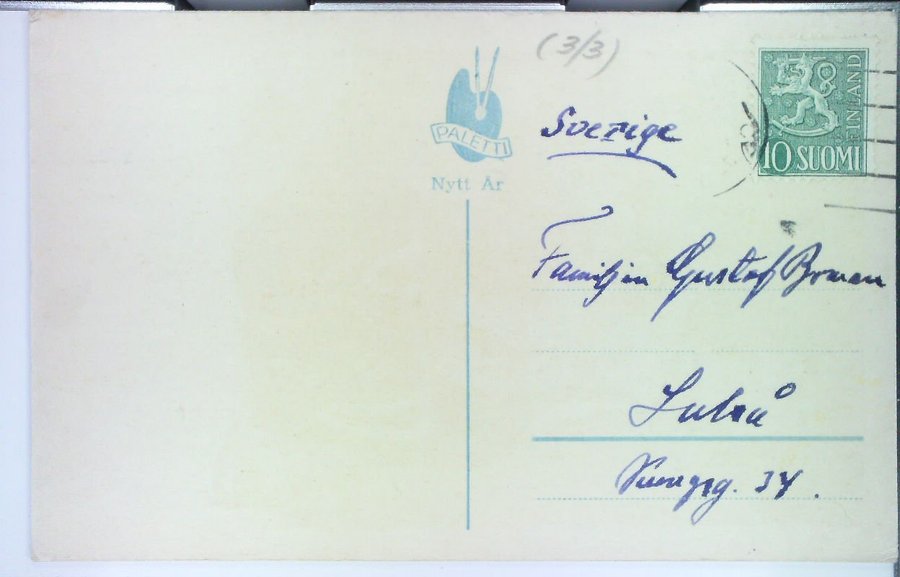 (3/3)
PALETTI
Nytt År
Sverige
10 SUOMI
FINLAND
Familjen Gustaf Boman
Luleå
34.